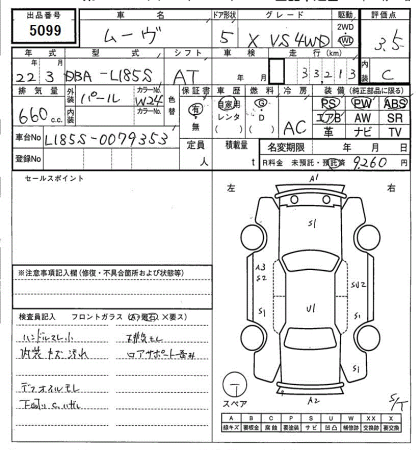 出品番号 車名 ドア形状 グレード 駆動 評価点
5099 ムーヴ 5 X VS 4WD 2WD 4WD 3.5
年式 型式 シフト 車検 走行(km) 内装
22 3 DBA-L185S AT 年 月 33213 C
排気量 外装 カラーNo. 色替 保証書 車歴 燃料 冷房 装備(純正部品に限る)
660 c.c. パール W24 有 自家用 G AC PS PW ABS
内装 カラーNo. ・ レンタ D エアB AW SR
無 革 ナビ TV
車台No L185S-0079353 定員 積載量 名変期限 年 月 日
登録No 人 t R料金 未預託・預託済 9260 円
セールスポイント 左 右
A1
S1
A3
S2
S1
U1
SU2
S1
A2
スペア
S/T
※注意事項記入欄(修復・不具合箇所および状態等)
検査員記入 フロントガラス(A・飛石×要ス)
ハンドルスレ小
内装キズ汚れ
デフオイルモレ
下回りC.ハガレ
A B C P S U W X XX ×
線キズ 要板金 腐蝕 要塗装 サビ 凹凸 補修跡 交換跡 要交換